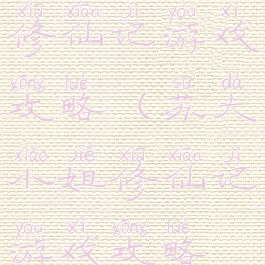 xiū xiān jì yóu xì
修仙记游戏
gōng lüè sū dà
攻略（苏大
xiǎo jiě xiū xiān jì
小姐修仙记
yóu xì gōng lüè
游戏攻略